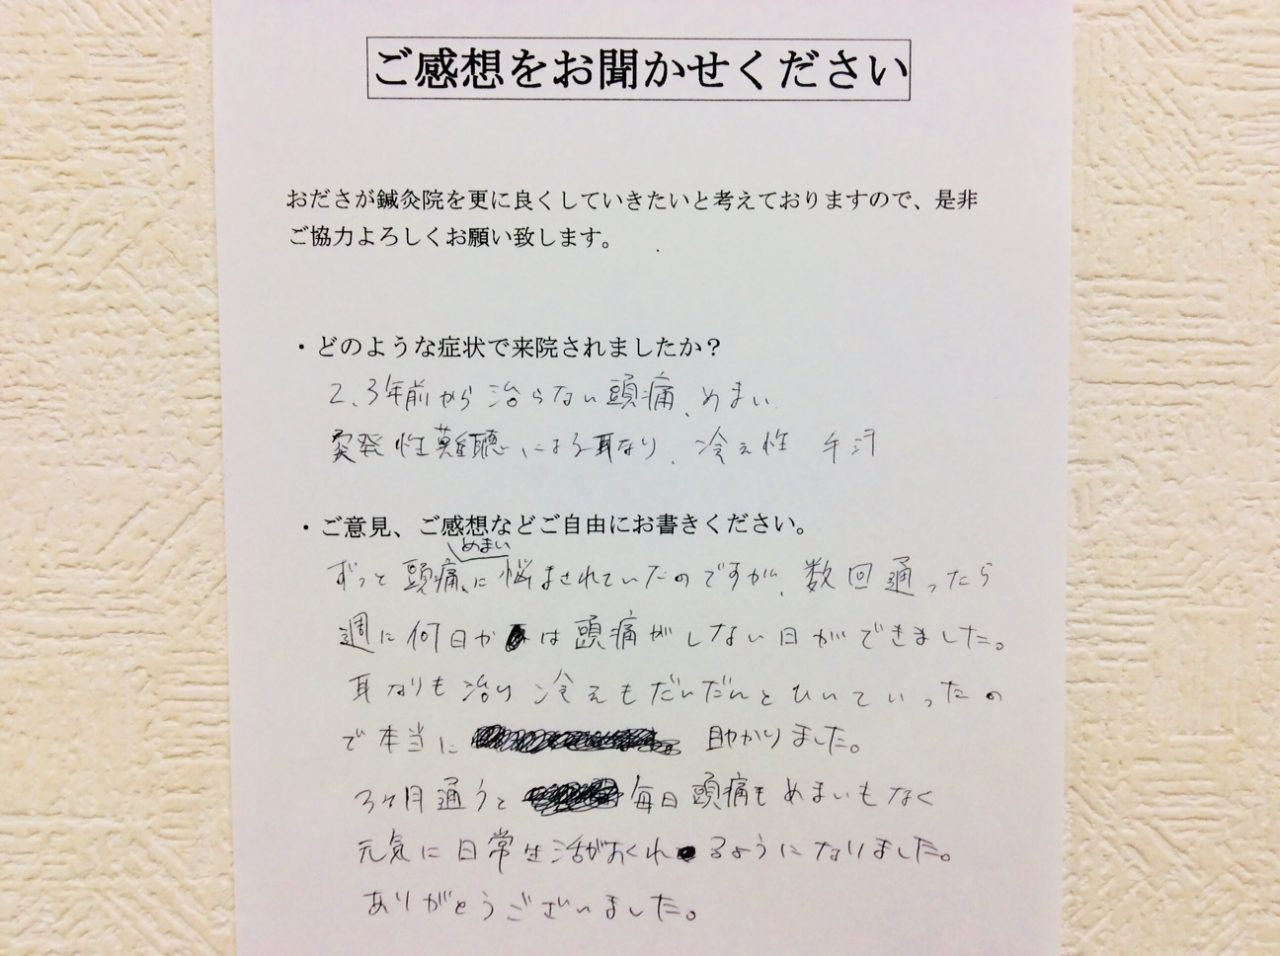 ご感想をお聞かせください
おださが鍼灸院を更に良くしていきたいと考えておりますので、是非
ご協力よろしくお願い致します。
・どのような症状で来院されましたか？
2、3年前から治らない頭痛、めまい
突発性難聴による耳なり、冷え性 手汗
・ご意見、ご感想などご自由にお書きください。
めまい
ずっと頭痛、に悩まされていたのですが、数回通ったら
週に何日かは頭痛がしない日ができました。
耳なりも治り冷えもだんだんとひいていったの
で本当に 助かりました。
3ヶ月通うと 毎日頭痛もめまいもなく
元気に日常生活がおくれるようになりました。
ありがとうございました。